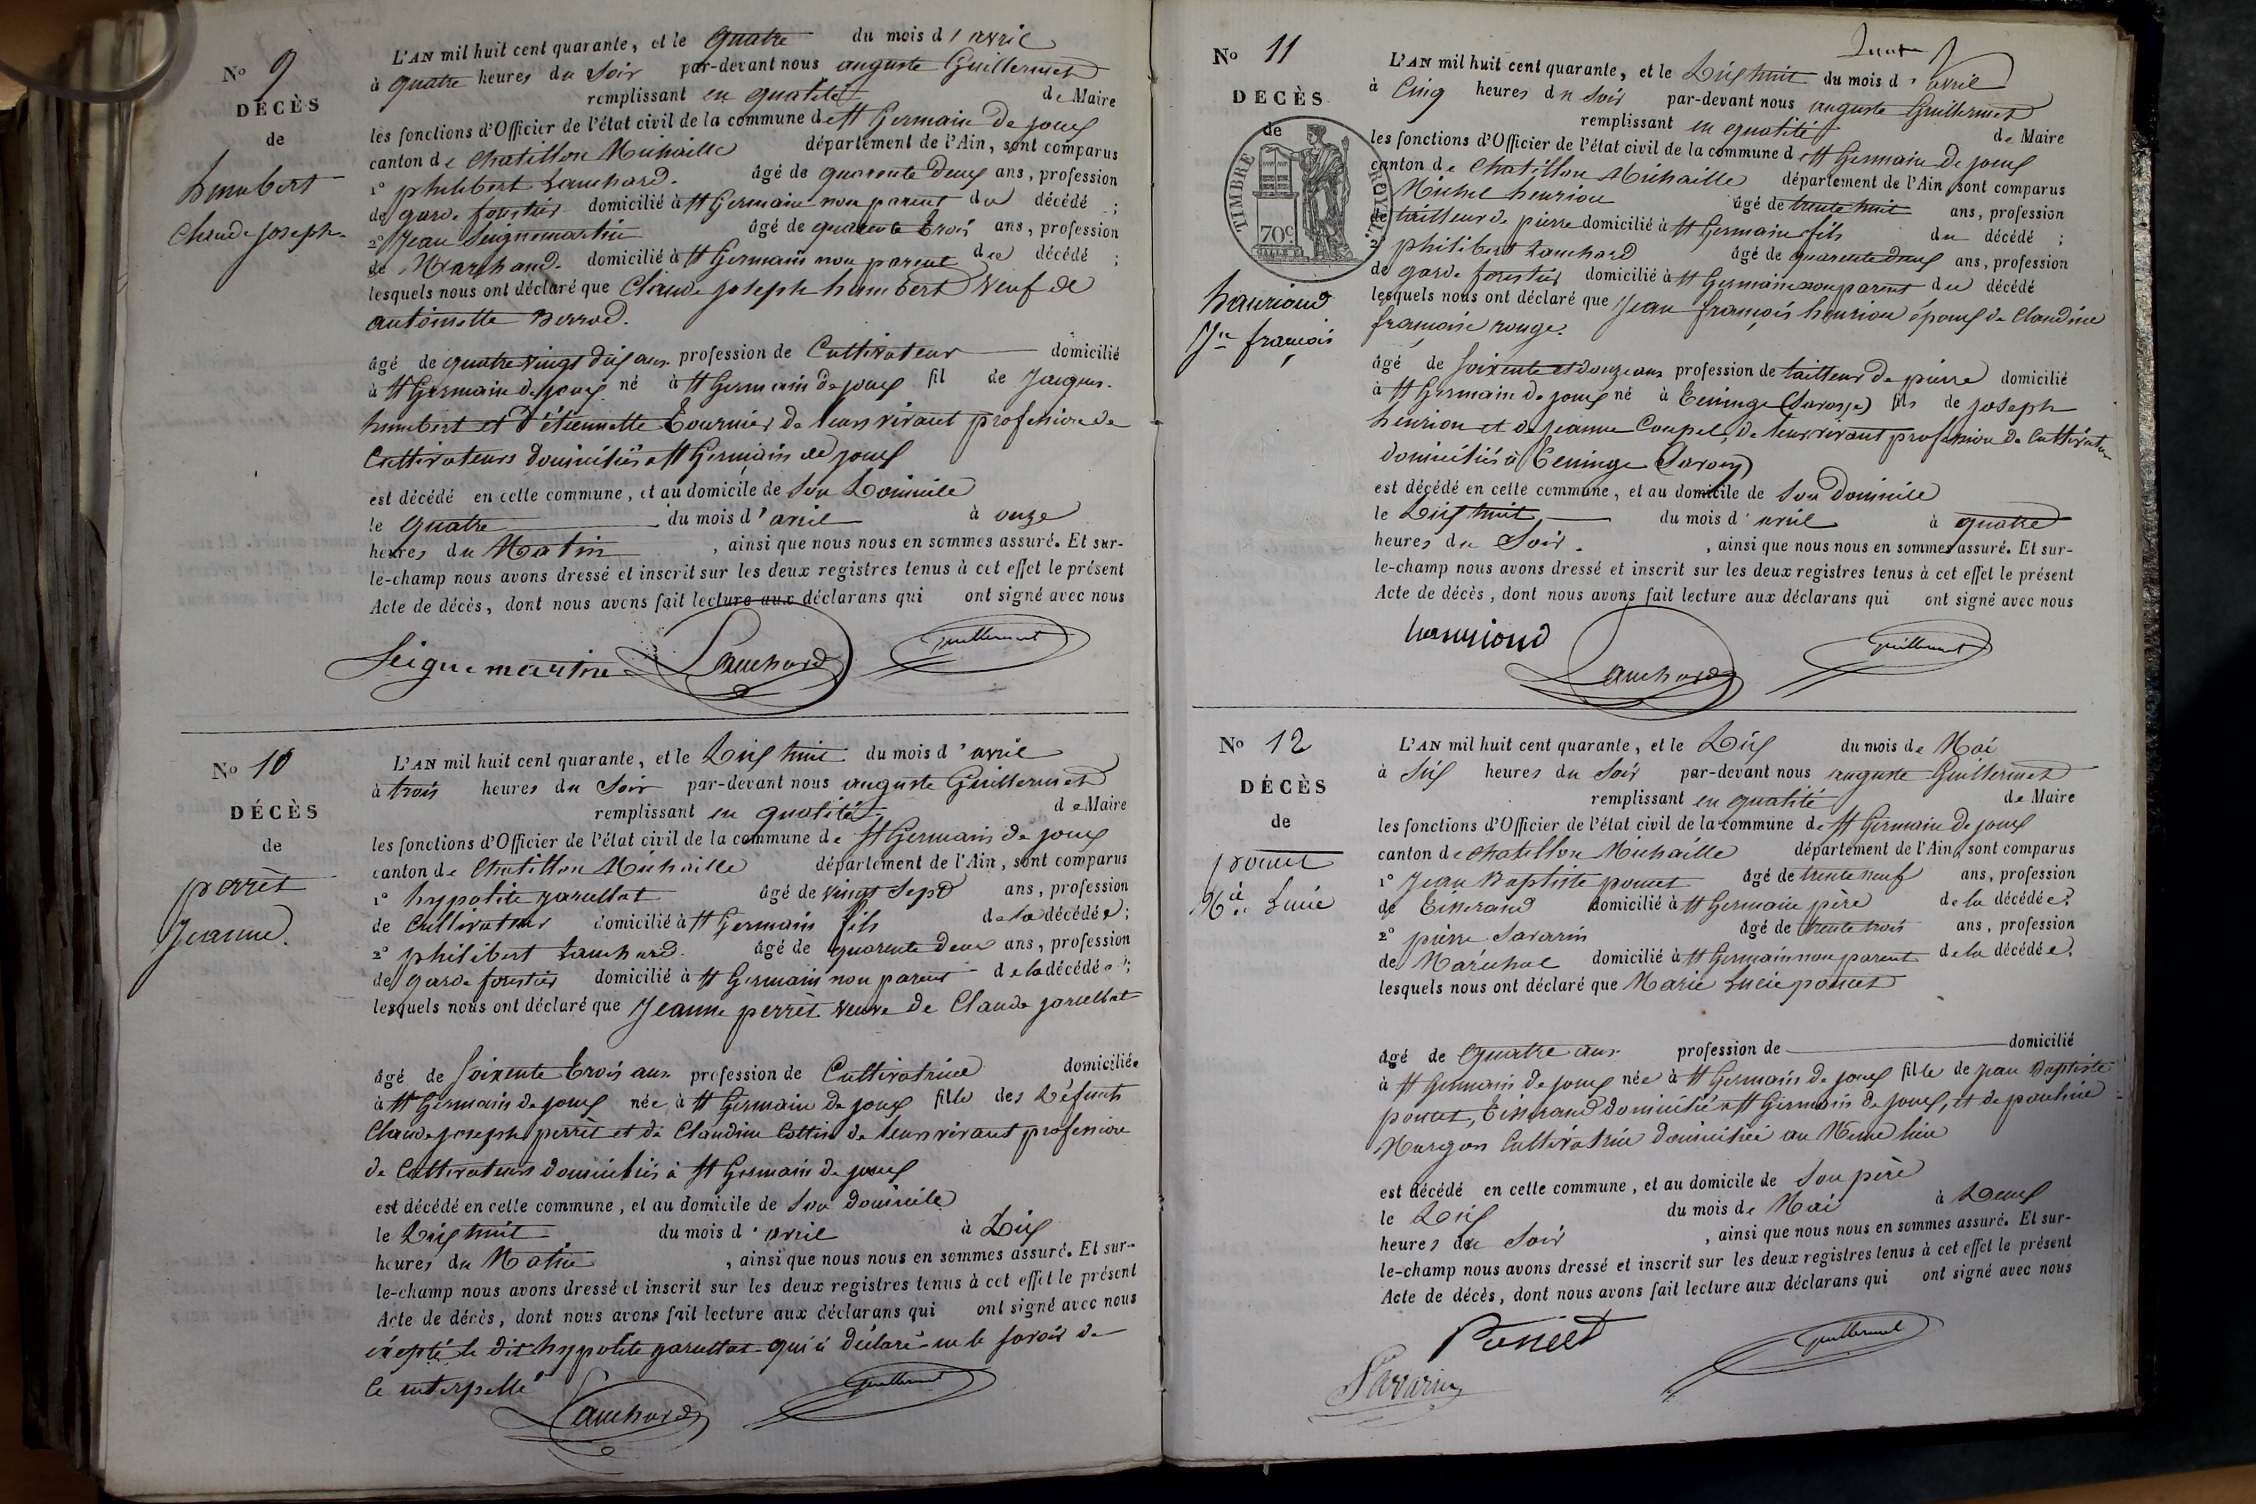 No 9
DÉCÈS
de
humbert
Claude joseph.
L'AN mil huit cent quarante, et le quatre du mois d'avril
à quatre heures du Soir par-devant nous auguste Guillermet
remplissant en qualité de Maire
les fonctions d'Officier de l'état civil de la commune de St Germain De joux
canton de Chatillon Michaille département de l'Ain, sont comparus
1° philibert Lanchard. âgé de quarente Deux ans, profession
de garde forestier domicilié à St Germain non parent du décédé ;
2° Jean Seignemartin âgé de quarente trois ans, profession
de Marchand. domicilié à St Germain non parent du décédé ;
lesquels nous ont déclaré que Claude joseph humbert veuf de
antoinette
âgé de quatre vingt dix ans. profession de Cultivateur domicilié
à St Germain de joux né à St Germain de joux fil de Jacques
humbert et d'étiennette tournier de leurs vivant profession de
Cultivateurs domiciliés à St Germain de joux
est décédé en cette commune, et au domicile de Son Domicile
le quatre du mois d'avril à onze
heures du Matin , ainsi que nous nous en sommes assuré. Et sur-
le-champ nous avons dressé et inscrit sur les deux registres tenus à cet effet le présent
Acte de décès, dont nous avons fait lecture aux déclarans qui ont signé avec nous
Seignemartin Lanchard Guillermet
No 10
DÉCÈS
de
perrèt
Jeanne.
L'AN mil huit cent quarante, et le Dix huit du mois d'avril
à trois heures du Soir par-devant nous auguste Guillermet
remplissant en qualité de Maire
les fonctions d'Officier de l'état civil de la commune de St Germain de joux
canton de Chatillon Michaille département de l'Ain, sont comparus
1° hypolite âgé de vingt Sept ans, profession
de Cultivateur domicilié à St Germain fils de la décédée ;
2° philibert Lanchard. âgé de quarente deux ans, profession
de garde forestier domicilié à St Germain non parent de la décédée ;
lesquels nous ont déclaré que Jeanne perrèt veuve de Claude
âgé de Soixente trois ans profession de Cultivatrice domiciliée
à St Germain de joux née à St Germain de joux fille des Défunts
Claude joseph perrèt et de Claudine Cottin de leurs vivant profession
de Cultivateurs domiciliés à St Germain de joux
est décédé en cette commune, et au domicile de Son domicile
le Dix huit du mois d'avril à Dix
heures du Matin , ainsi que nous nous en sommes assuré. Et sur-
le-champ nous avons dressé et inscrit sur les deux registres tenus à cet effet le présent
Acte de décès, dont nous avons fait lecture aux déclarans qui ont signé avec nous
éxepté le dit hypolite qui à déclaré ne le savoir de
ce interpellé
Lanchard Guillermet
No 11
DECÈS
de
TIMBRE ROYAL
70c
hanriond
Jn françois
L'AN mil huit cent quarante, et le Dix huit du mois d'avril
à Cinq heures du Soir par-devant nous auguste Guillermet
remplissant en qualité de Maire
les fonctions d'Officier de l'état civil de la commune de St Germain de joux
canton de Chatillon Michaille département de l'Ain, sont comparus
1° Michel henrion âgé de trente huit ans, profession
de tailleur de pierre domicilié à St Germain fils du décédé ;
2° philibert Lanchard âgé de quarente deux ans, profession
de garde forestier domicilié à St Germain non parent du décédé
lesquels nous ont déclaré que Jean françois henrion époux de Claudine
françoise rouge.
âgé de Soixente et douze ans profession de tailleur de pierre domicilié
à St Germain de joux né à Teninge (Savoye) fils de joseph
henrion et de jeanne Coupel, de leur vivant profession de Cultivateur
domiciliés à Teninge (Savoy)
est décédé en cette commune, et au domicile de Son Domicile
le Dix huit du mois d'avril à quatre
heures du Soir. , ainsi que nous nous en sommes assuré. Et sur-
le-champ nous avons dressé et inscrit sur les deux registres tenus à cet effet le présent
Acte de décès, dont nous avons fait lecture aux déclarans qui ont signé avec nous
hanriond Lanchard Guillermet
No 12
DÉCÈS
de
poncet
Mie Lucie
L'AN mil huit cent quarante, et le Dix du mois de Mai
à Six heures du Soir par-devant nous auguste Guillermet
remplissant en qualité de Maire
les fonctions d'Officier de l'état civil de la commune de St Germain de joux
canton de Chatillon Michaille département de l'Ain, sont comparus
1° Jean Baptiste poncet âgé de trente neuf ans, profession
de Tisserand domicilié à St Germain père de la décédée ;
2° pierre Savarin âgé de trente trois ans, profession
de Maréchal domicilié à St Germain non parent de la décédée.
lesquels nous ont déclaré que Marie Lucie poncet
âgé de quatre ans. profession de domicilié
à St Germain de joux née à St Germain de joux fille de jean Baptiste
poncet, Tisserand domicilié à St Germain de joux, et de pauline
Cultivatrice domiciliée au Même lieu
est décédé en cette commune, et au domicile de Son père
le Dix du mois de Mai à Deux
heures du Soir , ainsi que nous nous en sommes assuré. Et sur-
le-champ nous avons dressé et inscrit sur les deux registres tenus à cet effet le présent
Acte de décès, dont nous avons fait lecture aux déclarans qui ont signé avec nous
Poncet Guillermet
Savarin